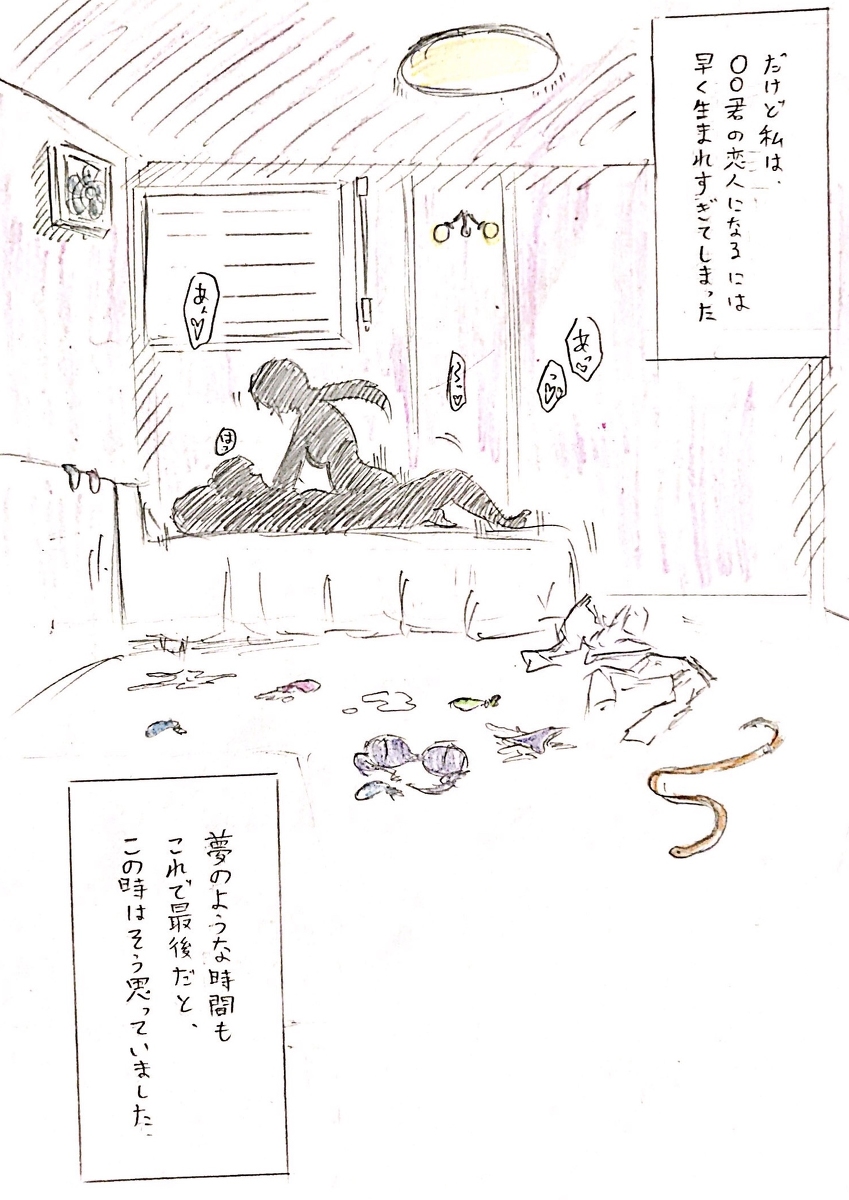 だけど私は、
〇〇君の恋人になるには
早く生まれすぎてしまった
あっ♡
っ♡
ん～っ♡
あぁ♡
はっ
夢のような時間も
これで最後だと、
この時はそう思っていました